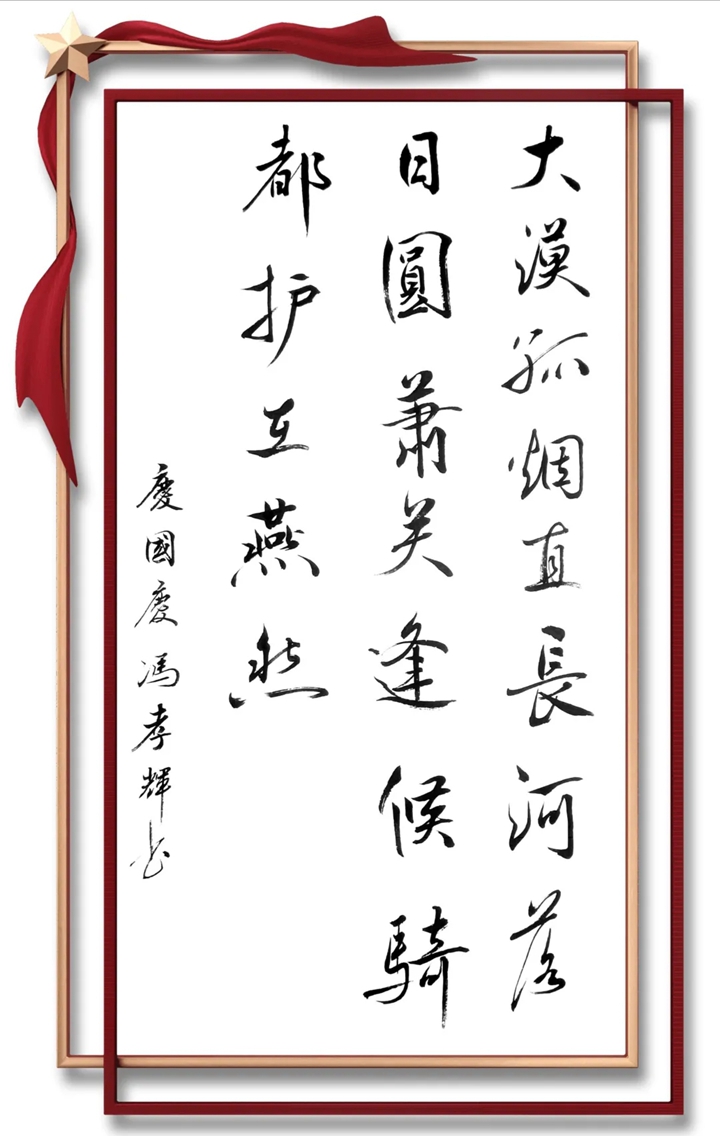 大漠孤烟直長河落
日圓蕭关逢候騎
都护在燕然
慶國慶馮孝輝书